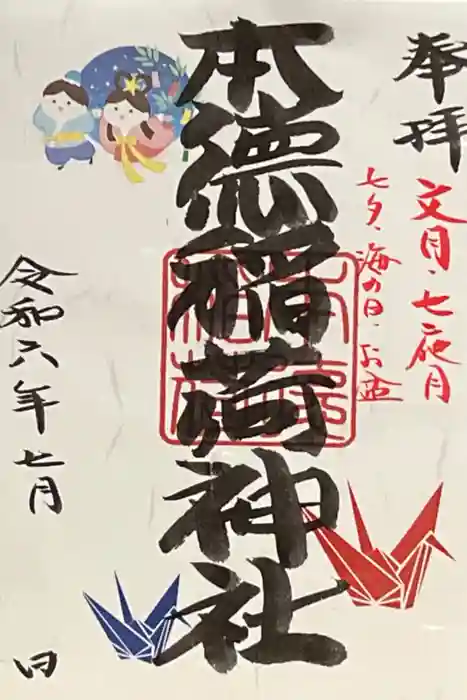 奉拝
文月・七夜月
七夕・海の日・お盆
本徳稲荷神社
令和六年七月 日